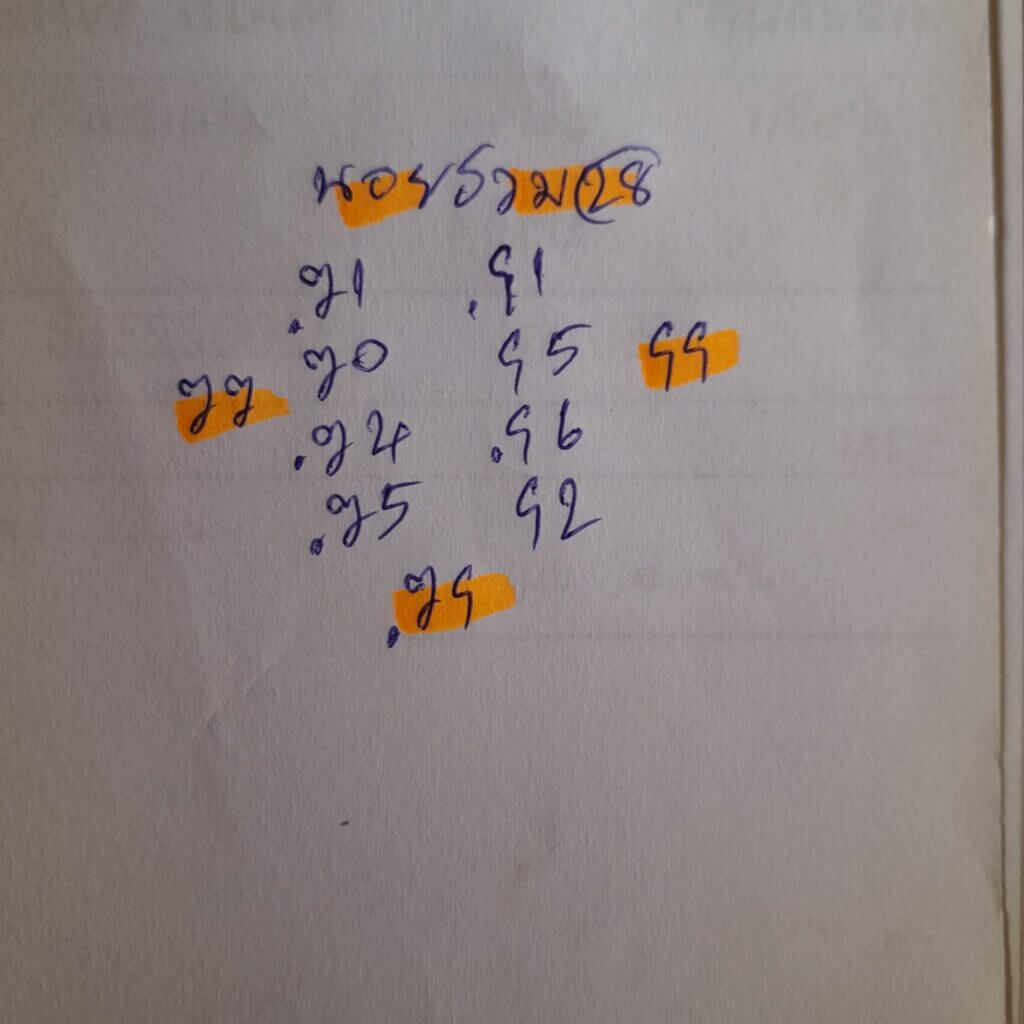 นอยรวม 28
.71 .91
70 95 99
77
.74 .96
.75 92
.79